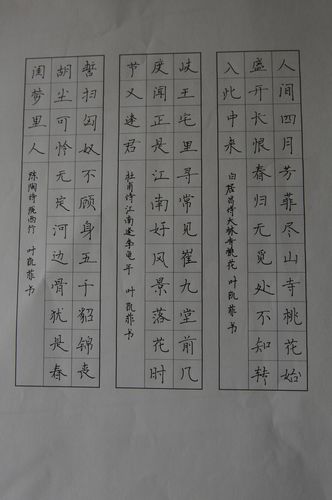 人间四月芳菲尽山寺桃花始
盛开长恨春归无觅处不知转
入此中来
白居易诗大林寺桃花 叶凯菲书
岐王宅里寻常见崔九堂前几
度闻正是江南好风景落花时
节又逢君
杜甫诗江南逢李龟年 叶凯菲书
誓扫匈奴不顾身五千貂锦丧
胡尘可怜无定河边骨犹是春
闺梦里人
陈陶诗陇西行 叶凯菲书